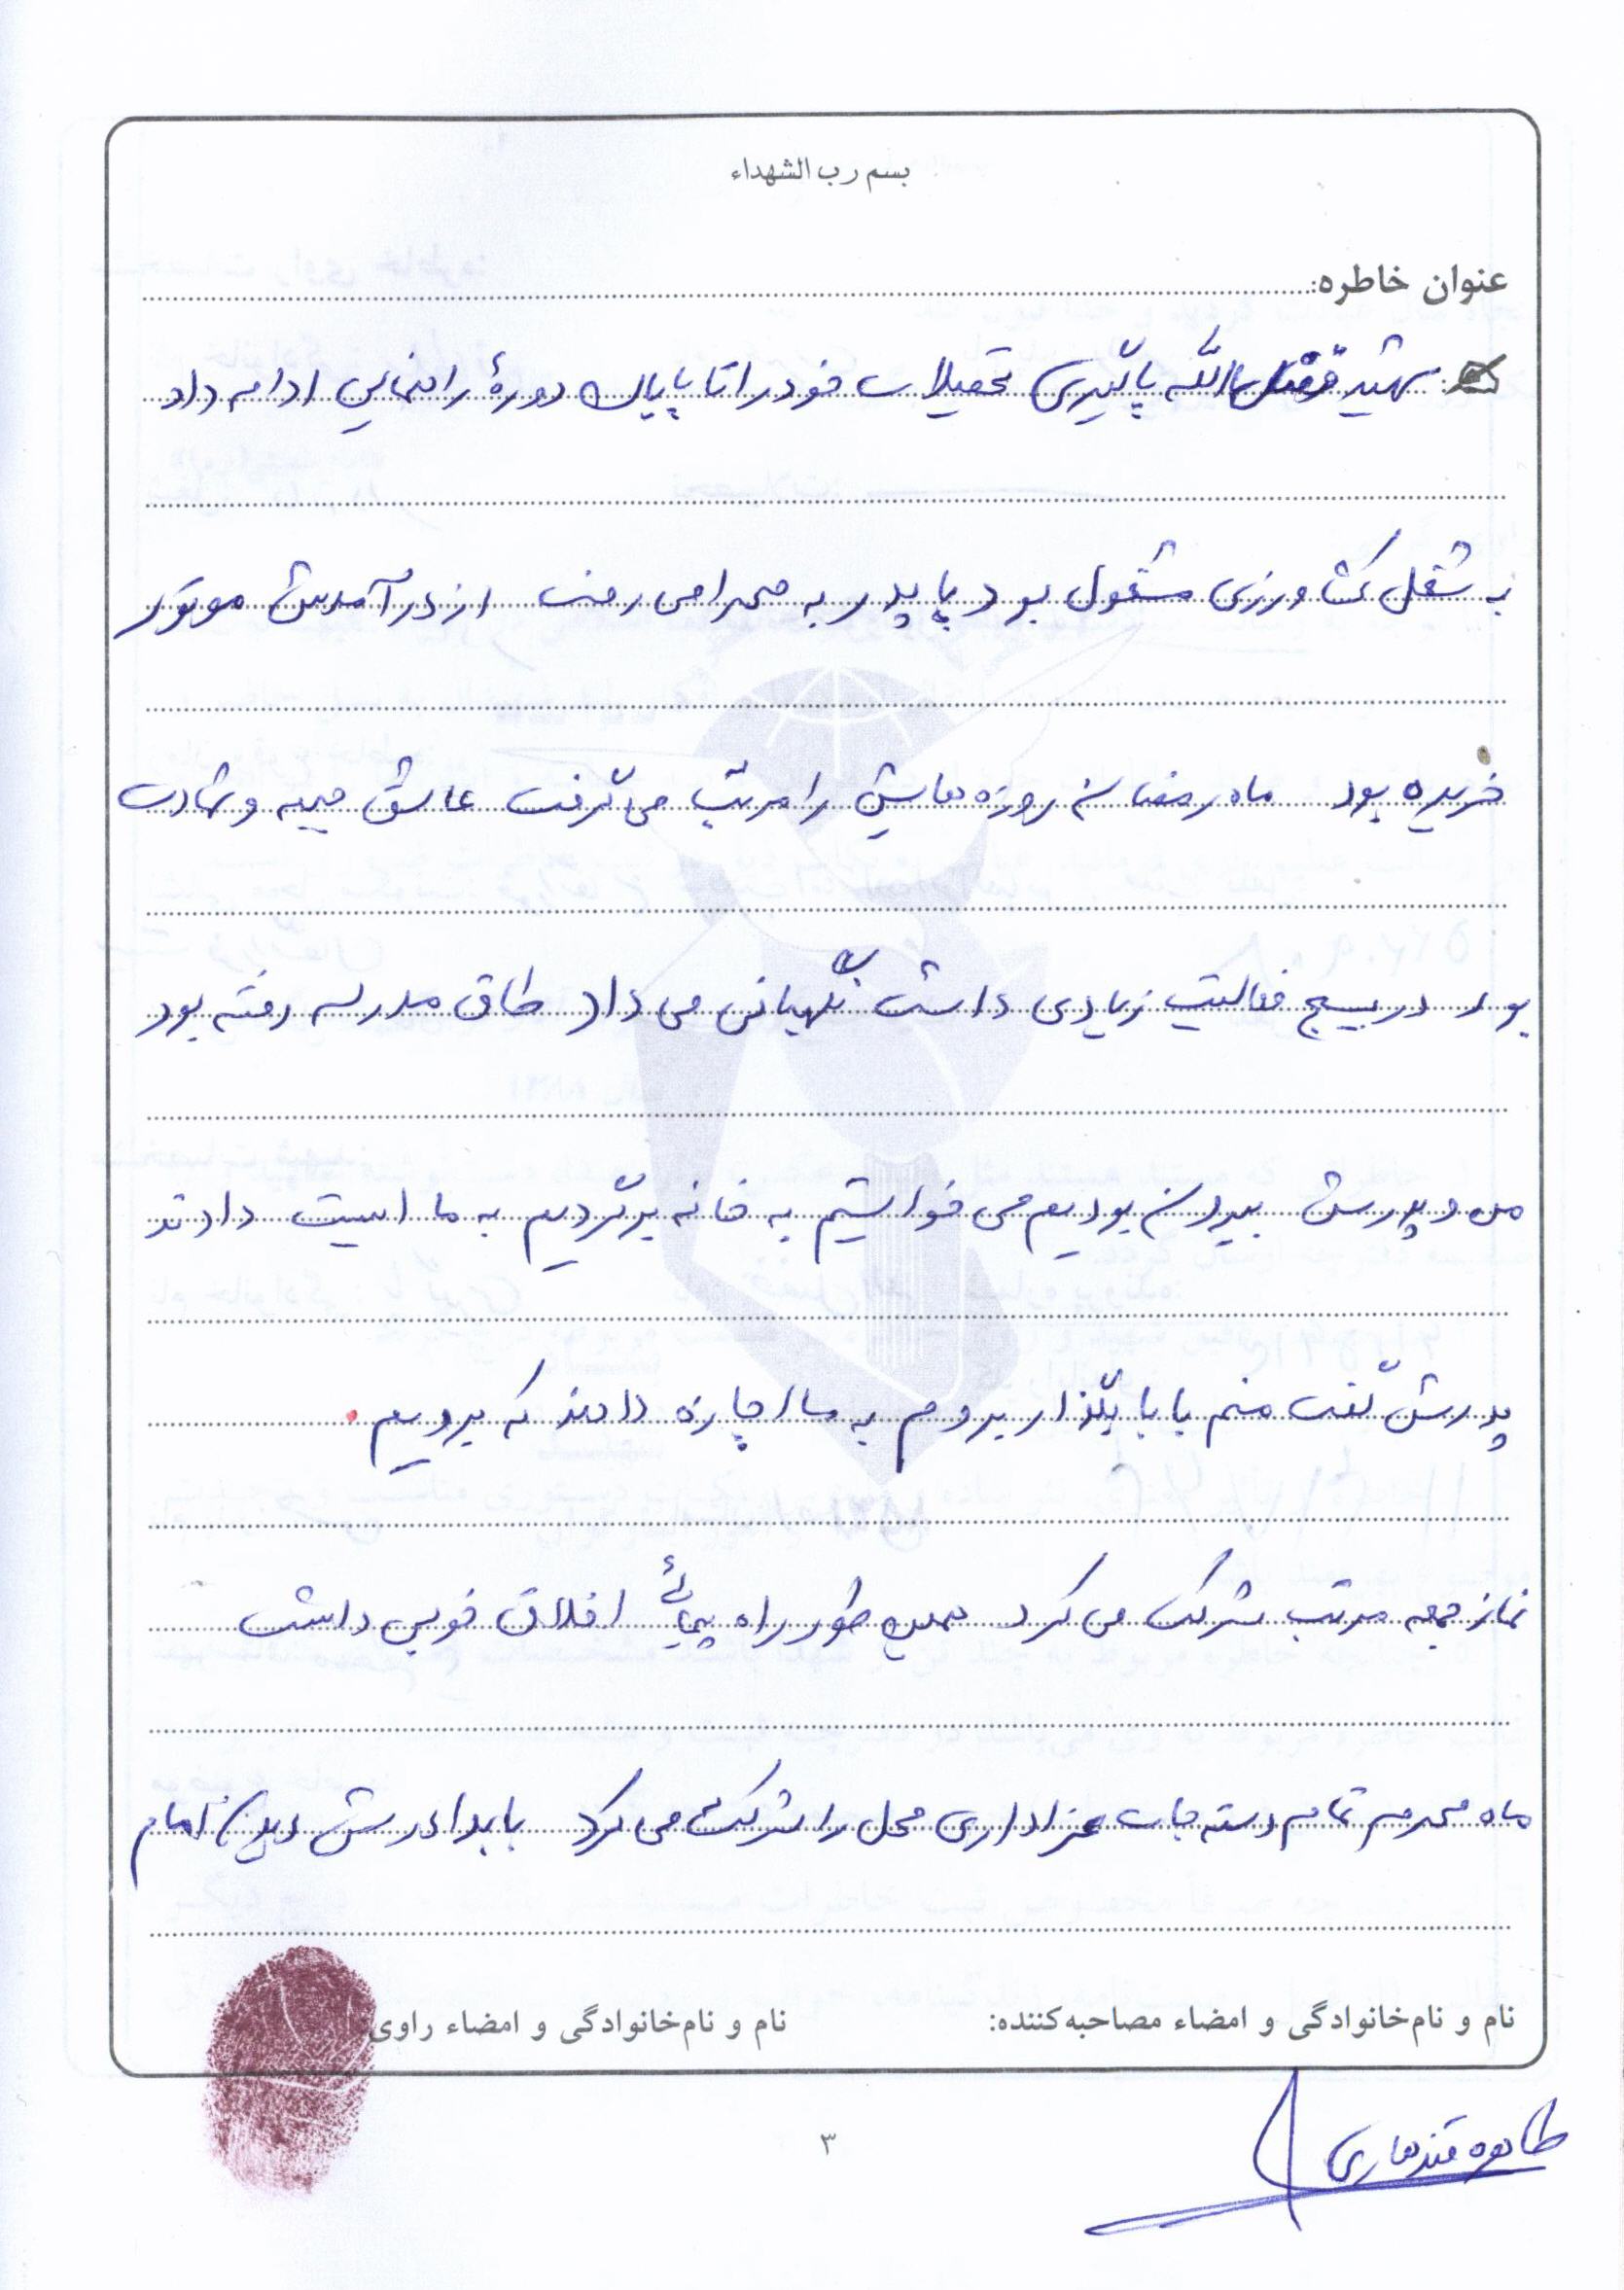 بسم رب الشهداء
عنوان خاطره:
شهید فضل الله پاگیری تحصیلات خود را تا پایان دورهٔ راهنمایی ادامه داد
به شغل کشاورزی مشغول بود با پدر به صحرا می رفت از درآمدش موتور
خریده بود ماه رمضان روزه هایش را مرتب می گرفت عاشق جبهه و شهادت
بود در بسیج فعالیت زیادی داشت نگهبانی می داد طاق مدرسه رفته بود
من و پدرش بیرون بودیم می خواستیم به خانه برگردیم به ما ایست دادند
پدرش گفت منم بابا بگذار بروم به ما اجازه دادند که برویم.
نماز جمعه مرتب شرکت می کرد همین طور راه پیمائی اخلاق خوبی داشت
ماه محرم تمام دسته جات عزاداری محل را شرکت می کرد با برادرش امام
نام و نام‌خانوادگی و امضاء مصاحبه‌کننده:
نام و نام‌خانوادگی و امضاء راوی:
طاهره قندهاری
۳